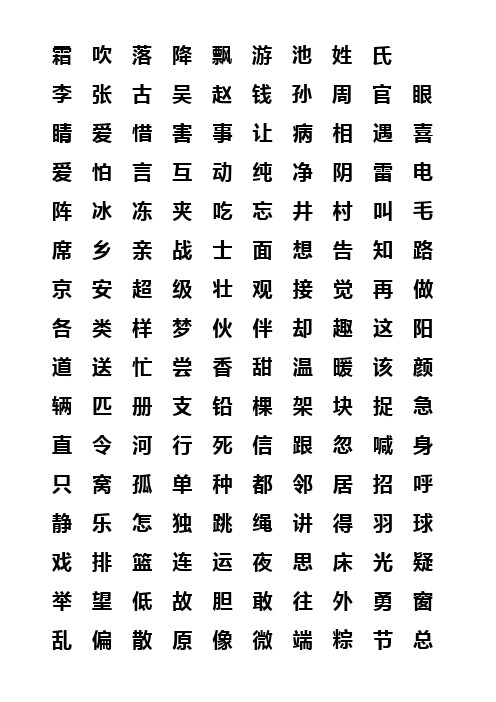 霜 吹 落 降 飘 游 池 姓 氏
李 张 古 吴 赵 钱 孙 周 官 眼
睛 爱 惜 害 事 让 病 相 遇 喜
爱 怕 言 互 动 纯 净 阴 雷 电
阵 冰 冻 夹 吃 忘 井 村 叫 毛
席 乡 亲 战 士 面 想 告 知 路
京 安 超 级 壮 观 接 觉 再 做
各 类 样 梦 伙 伴 却 趣 这 阳
道 送 忙 尝 香 甜 温 暖 该 颜
辆 匹 册 支 铅 棵 架 块 捉 急
直 令 河 行 死 信 跟 忽 喊 身
只 窝 孤 单 种 都 邻 居 招 呼
静 乐 怎 独 跳 绳 讲 得 羽 球
戏 排 篮 连 运 夜 思 床 光 疑
举 望 低 故 胆 敢 往 外 勇 窗
乱 偏 散 原 像 微 端 粽 节 总